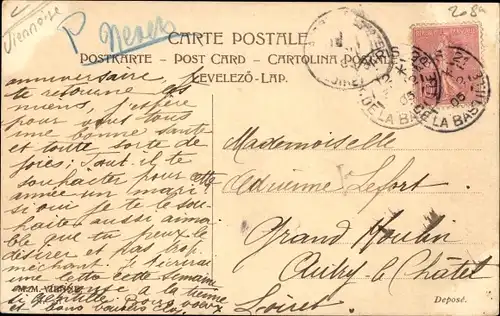 Viennoise
P Nevers
208a
CARTE POSTALE
POSTKARTE - POST CARD - CARTOLINA POSTALE
LEVELEZŐ-LAP.
PARIS
DE LA BASTILLE
DE LA BASTILLE
anniversaire, je
te retourne les
miens, j'espère
pour vous tous
une bonne santé
et toute sorte de
joies; faut il te
souhaiter pour cette
année un mari
si oui je te le sou-
haite aussi aima-
ble que tu peux le
désirer et pas trop
méchant. J'écrirai
une lettre cette semaine
en réponse à la tienne
si gentille. Bons voeux
et bons baisers
Mademoiselle
Adrienne Lefort
Grand Moulin
Autry le Châtel
Loiret
M.M. VIENNE
Deposé.